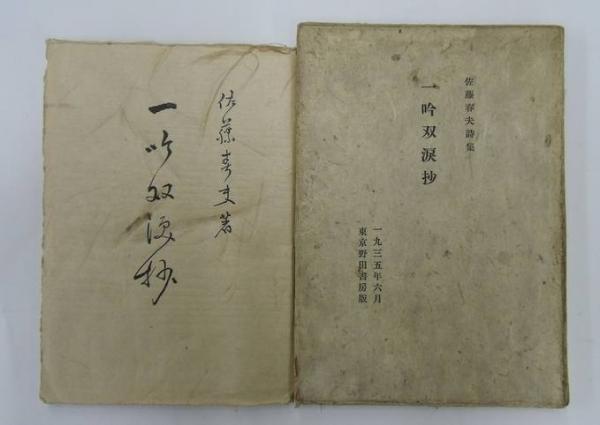 佐藤春夫著
一吟双涙抄
佐藤春夫詩集
一吟双涙抄
一九三五年六月
東京野田書房版